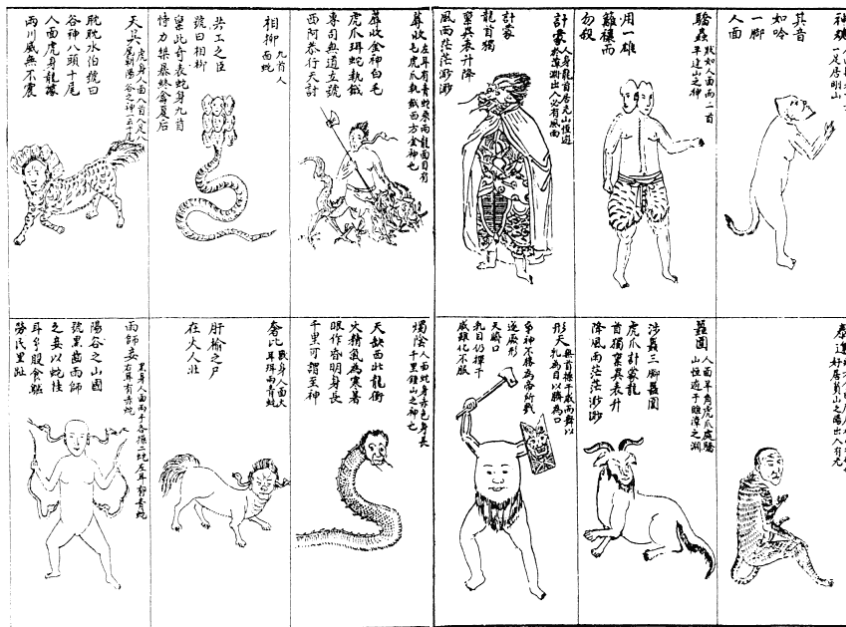 其音
如吟
一脚
人面
驕蟲
狀如人面而二首
平逢山之神
用一雄
雞禳而
勿殺
計蒙
人身龍首居光山恒遊
於漳淵出入必有風雨
計蒙
龍首獨
稟異表升降
風雨茫茫渺渺
蓐收
左耳有青蛇乘兩龍面目有
毛虎爪執鉞西方金神也
蓐收金神白毛
虎爪珥蛇執鉞
專司無道立號
西阿恭行天討
相柳
九首人
面蛇
共工之臣
號曰相柳
稟此奇表蛇身九首
恃力桀暴終禽夏后
天吳
虎身人面八首八足八
尾朝陽谷之神
耽耽水伯號曰
谷神八頭十尾
人面虎身龍據
兩川威無不震
山之陽出入有光
䰠圍
人面羊角虎爪處驕
山恒遊于雎漳之淵
涉䰠三脚䰠圍
虎爪計蒙龍
首獨稟異表升
降風雨茫茫渺渺
形天
無首操干戚而舞以
乳為目以臍為口
爭神不勝為帝所戮
遂厥形
天臍口
乳目仍揮干
戚雖化不服
燭陰
人面蛇身赤色身長
千里鍾山之神也
天缺西北龍銜
火精氣為寒暑
眼作昏明身長
千里可謂至神
奢比
獸身人面大
耳珥兩青蛇
肝榆之尸
在大人北
雨師妾
黑身人面兩手各操一蛇左耳有青蛇
右耳有赤蛇
陽谷之山國
號黑齒雨師
之妾以蛇挂
耳玄股食鷗
勞民黑趾